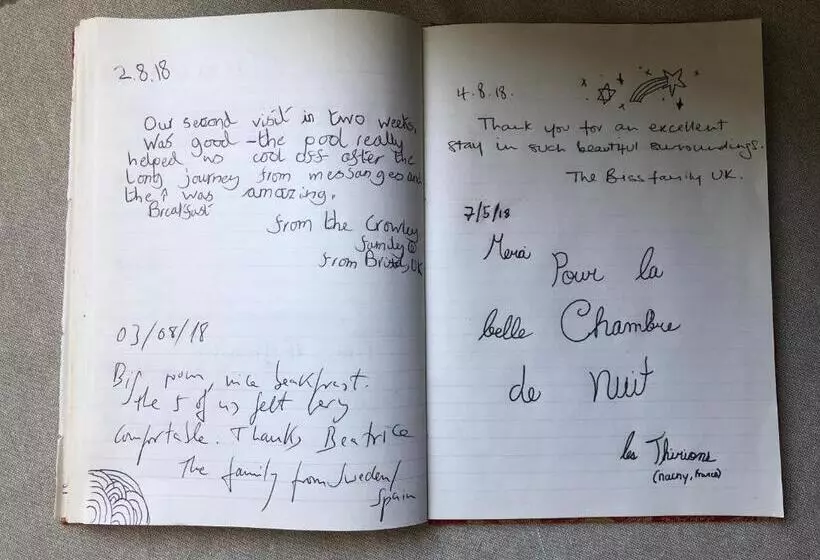 2.8.18
Our second visit in two weeks,
was good - the pool really
helped us cool off after the
long journey from messanges and
the ↑ was amazing.
Breakfast
from the Crowley
family
from Bristol, UK
03/08/18
Big room, nice beakfrast.
the 5 of us felt very
comfortable. Thanks Beatrice
The family from Sweden/
Spain
4.8.18.
Thank you for an excellent
stay in such beautiful surroundings.
The Biss family UK.
7/5/18
Merci
Pour la
belle Chambre
de Nuit
les Thirions
(nancy, France)